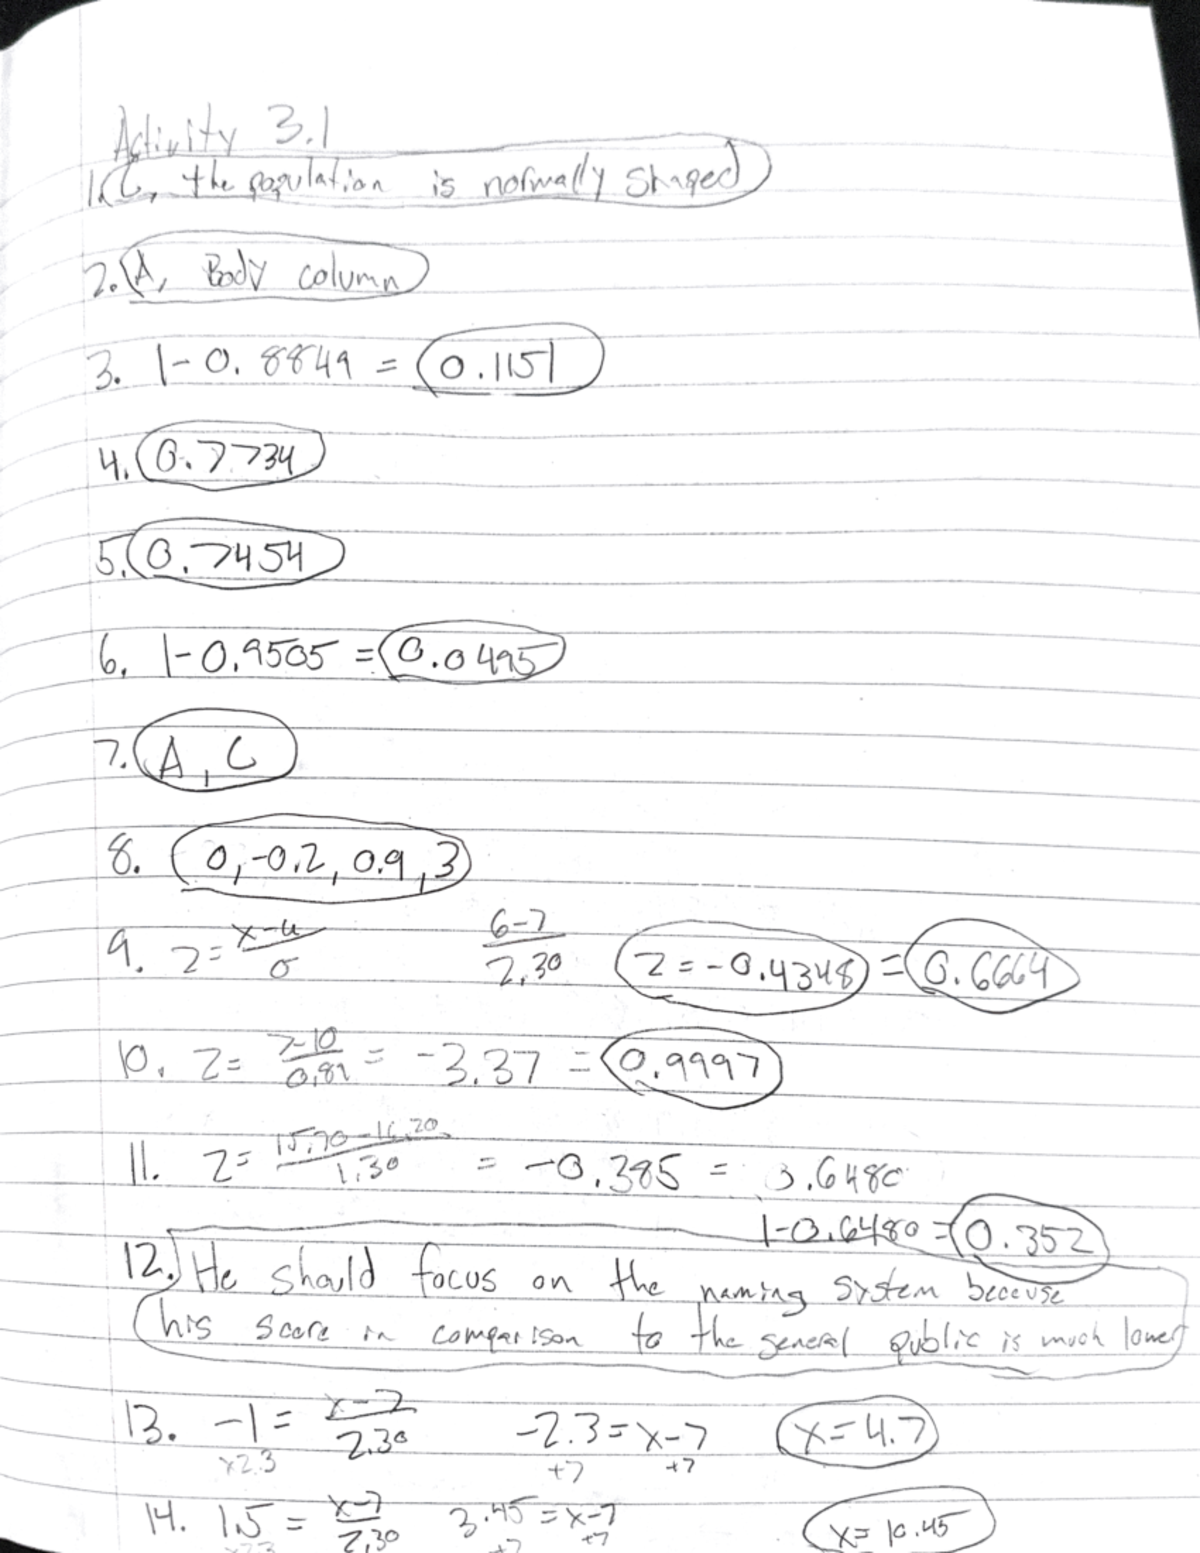 Activity 3.1
1. C, the population is normally shaped
2. A, Body column
3. 1-0.8849 = 0.1151
4. 0.7734
5. 0.7454
6. 1-0.9505 = 0.0495
7. A, C
8. 0, -0.2, 0.9, 3
9. z= x-u/σ 6-7/2.30 z=-0.4348 = 0.6664
10. z= 7-10/0.89 = -3.37 = 0.9997
11. z= 15.70-16.20/1.30 = -0.385 = 0.6480
1-0.6480 = 0.352
12. He should focus on the naming system because
his score in comparison to the general public is much lower
13. -1 = x-7/2.30 -2.3 = x-7 x=4.7
x2.3 +7 +7
14. 1.5 = x-7/2.30 3.45 = x-7 x=10.45
x2.3 +7 +7